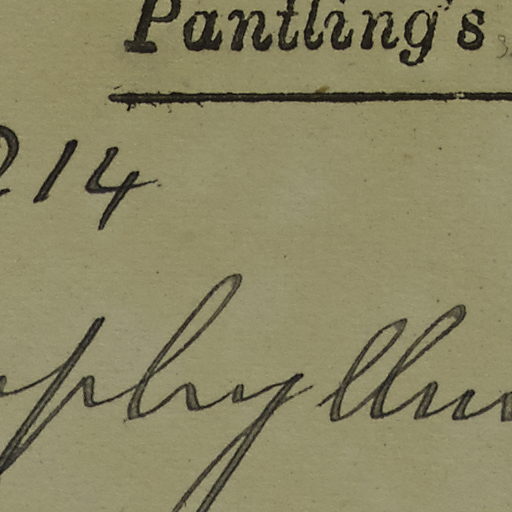 Pantling's
214
ophyllu